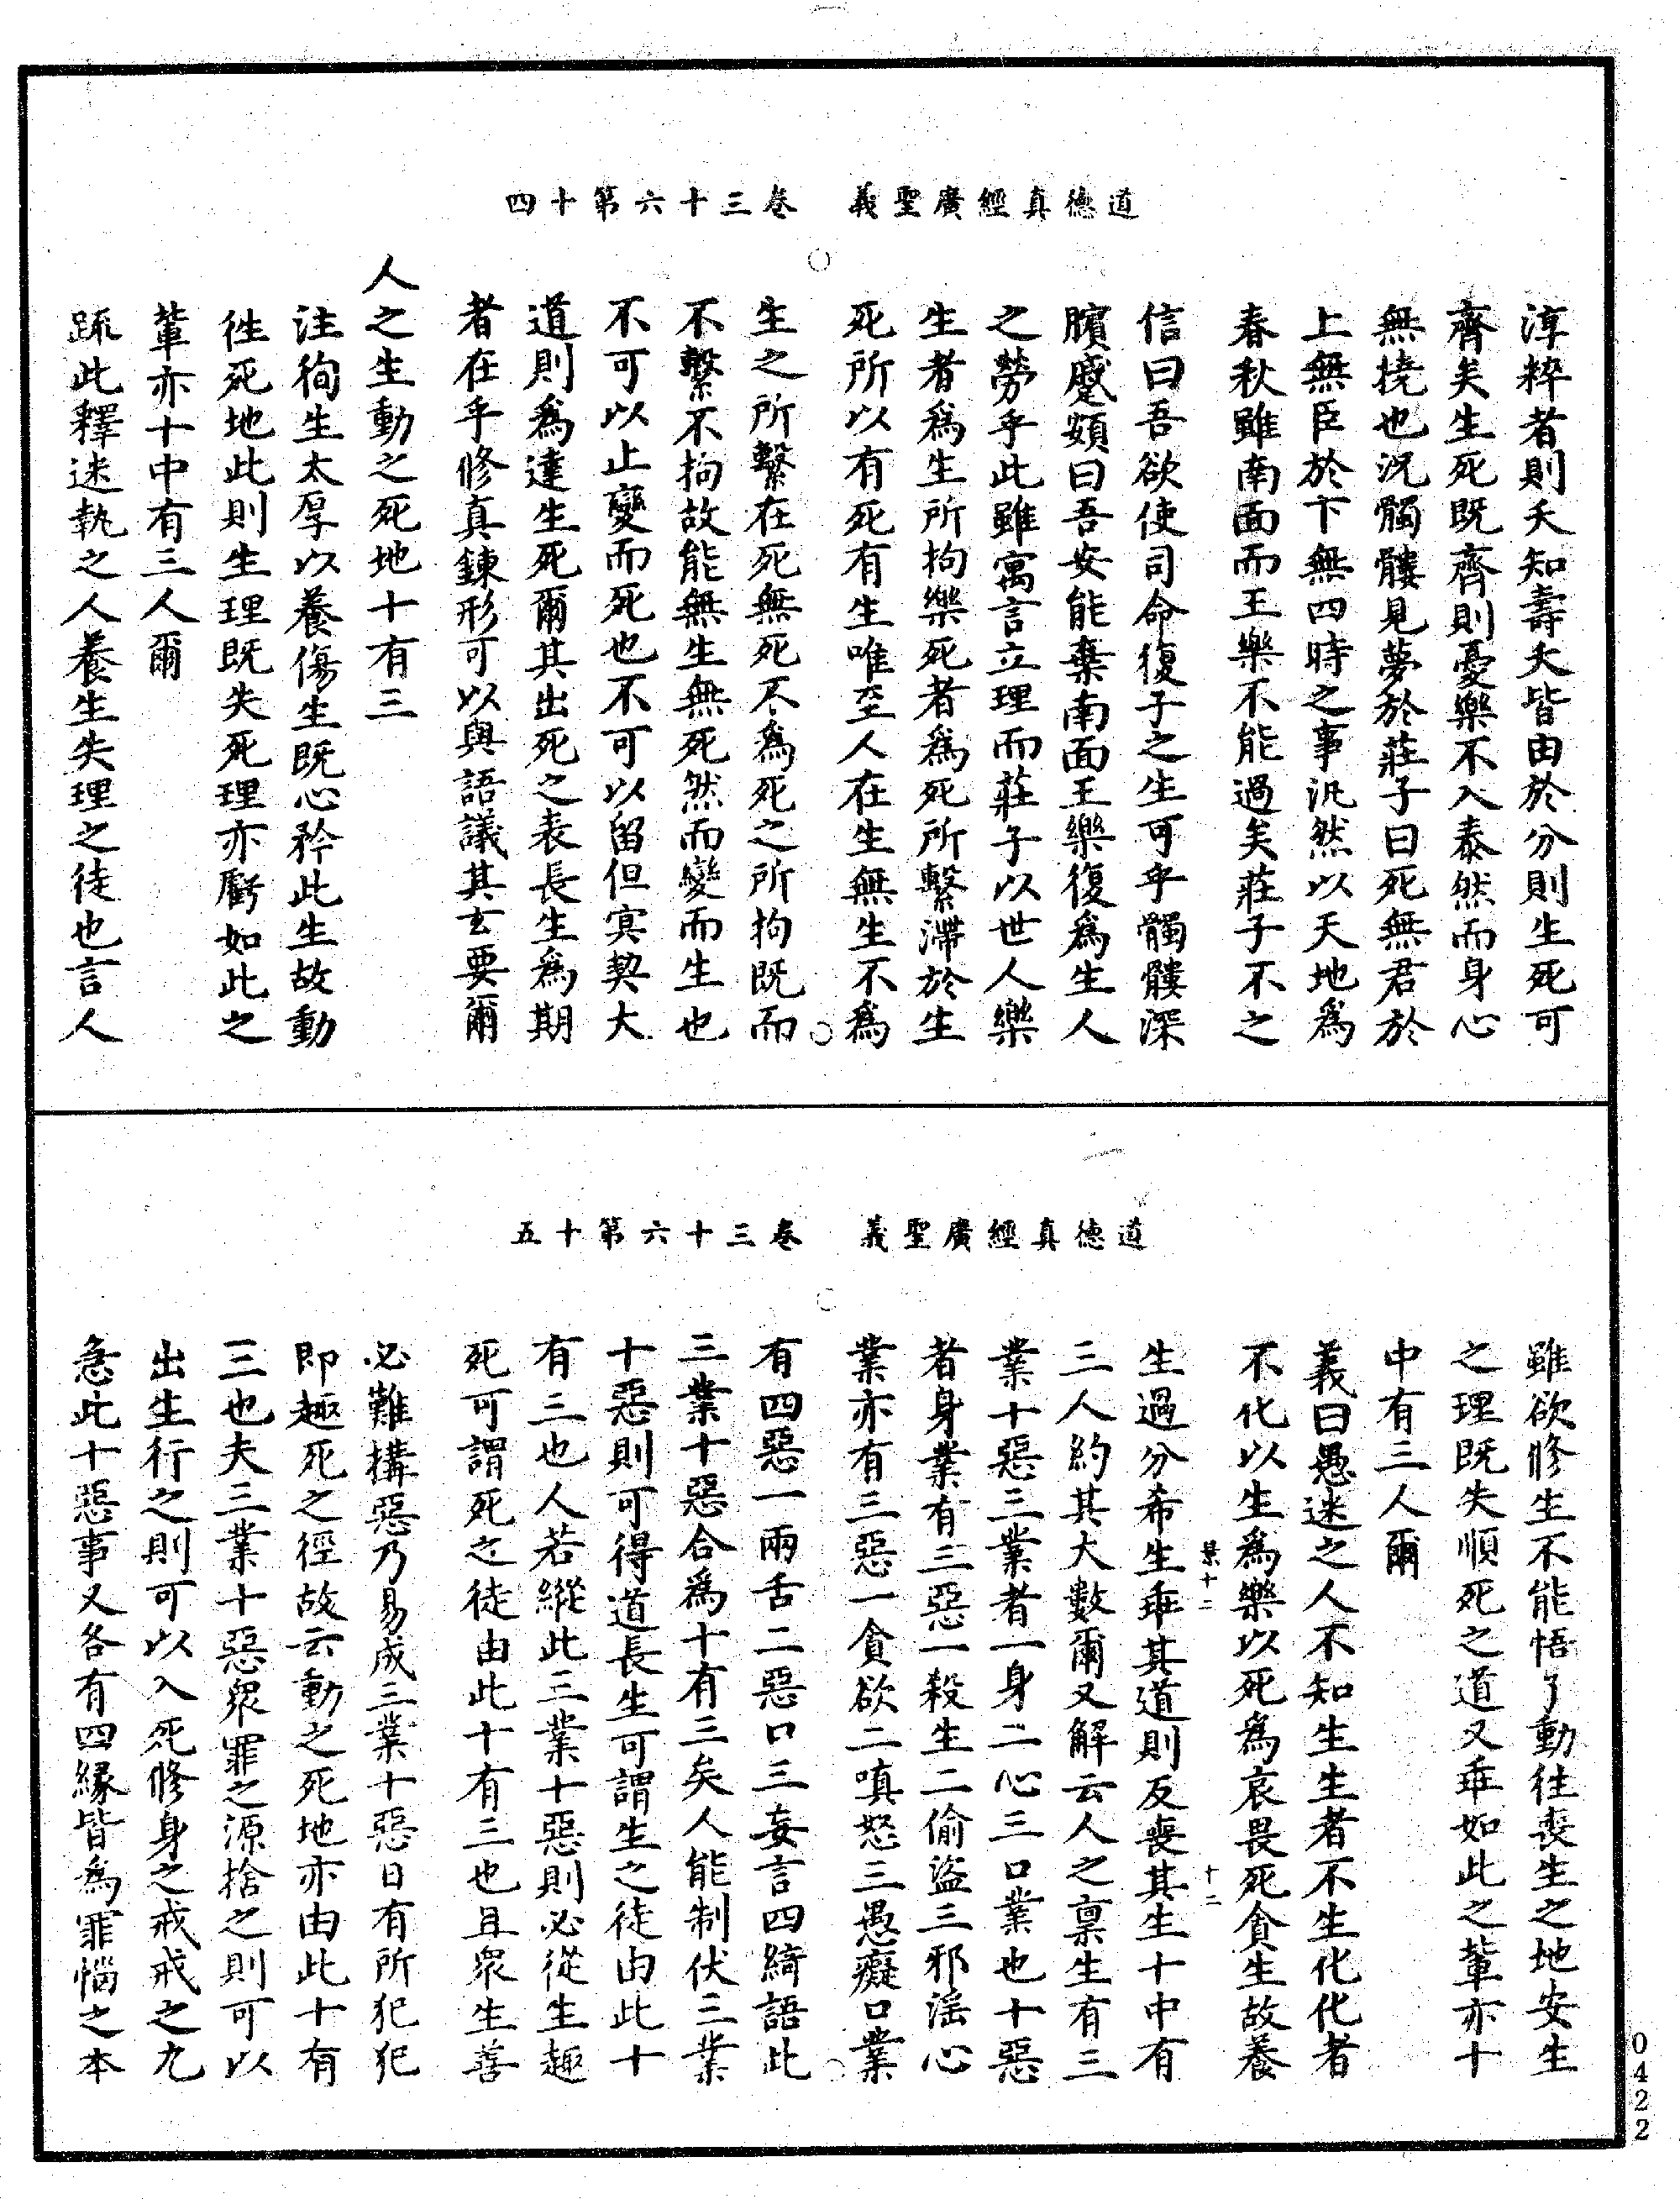 道德真經廣聖義　卷三十六第十四
淳粹者則夭知壽夭皆由於分則生死可
齊矣生死既齊則憂樂不入泰然而身心
無撓也況髑髏見夢於莊子曰死無君於
上無臣於下無四時之事汎然以天地爲
春秋雖南面而王樂不能過矣莊子不之
信曰吾欲使司命復子之生可乎髑髏深
臏蹙頞曰吾安能棄南面王樂復爲生人
之勞乎此雖寓言立理而莊子以世人樂
生者爲生所拘樂死者爲死所繫滯於生
死所以有死有生唯至人在生無生不爲
生之所繫在死無死不爲死之所拘既而
不繫不拘故能無生無死然而變而生也
不可以止變而死也不可以留但冥契大
道則爲達生死爾其出死之表長生爲期
者在乎修真鍊形可以與語議其玄要爾
人之生動之死地十有三
注徇生太厚以養傷生既心矜此生故動
徃死地此則生理既失死理亦虧如此之
輩亦十中有三人爾
疏此釋迷執之人養生失理之徒也言人
道德真經廣聖義　卷三十六第十五
雖欲修生不能悟了動往喪生之地安生
之理既失順死之道又乖如此之輩亦十
中有三人爾
義曰愚迷之人不知生生者不生化化者
不化以生爲樂以死爲哀畏死貪生故養
十二
生過分希生乖其道則反喪其生十中有
三人約其大數爾又解云人之稟生有三
業十惡三業者一身二心三口業也十惡
者身業有三惡一殺生二偷盜三邪淫心
業亦有三惡一貪欲二嗔怒三愚癡口業
有四惡一兩舌二惡口三妄言四綺語此
三業十惡合爲十有三矣人能制伏三業
十惡則可得道長生可謂生之徒由此十
有三也人若縱此三業十惡則必從生趣
死可謂死之徒由此十有三也且衆生善
必難搆惡乃易成三業十惡日有所犯犯
即趣死之徑故云動之死地亦由此十有
三也夫三業十惡衆罪之源捨之則可以
出生行之則可以入死修身之戒戒之尤
急此十惡事又各有四緣皆爲罪惱之本
0422